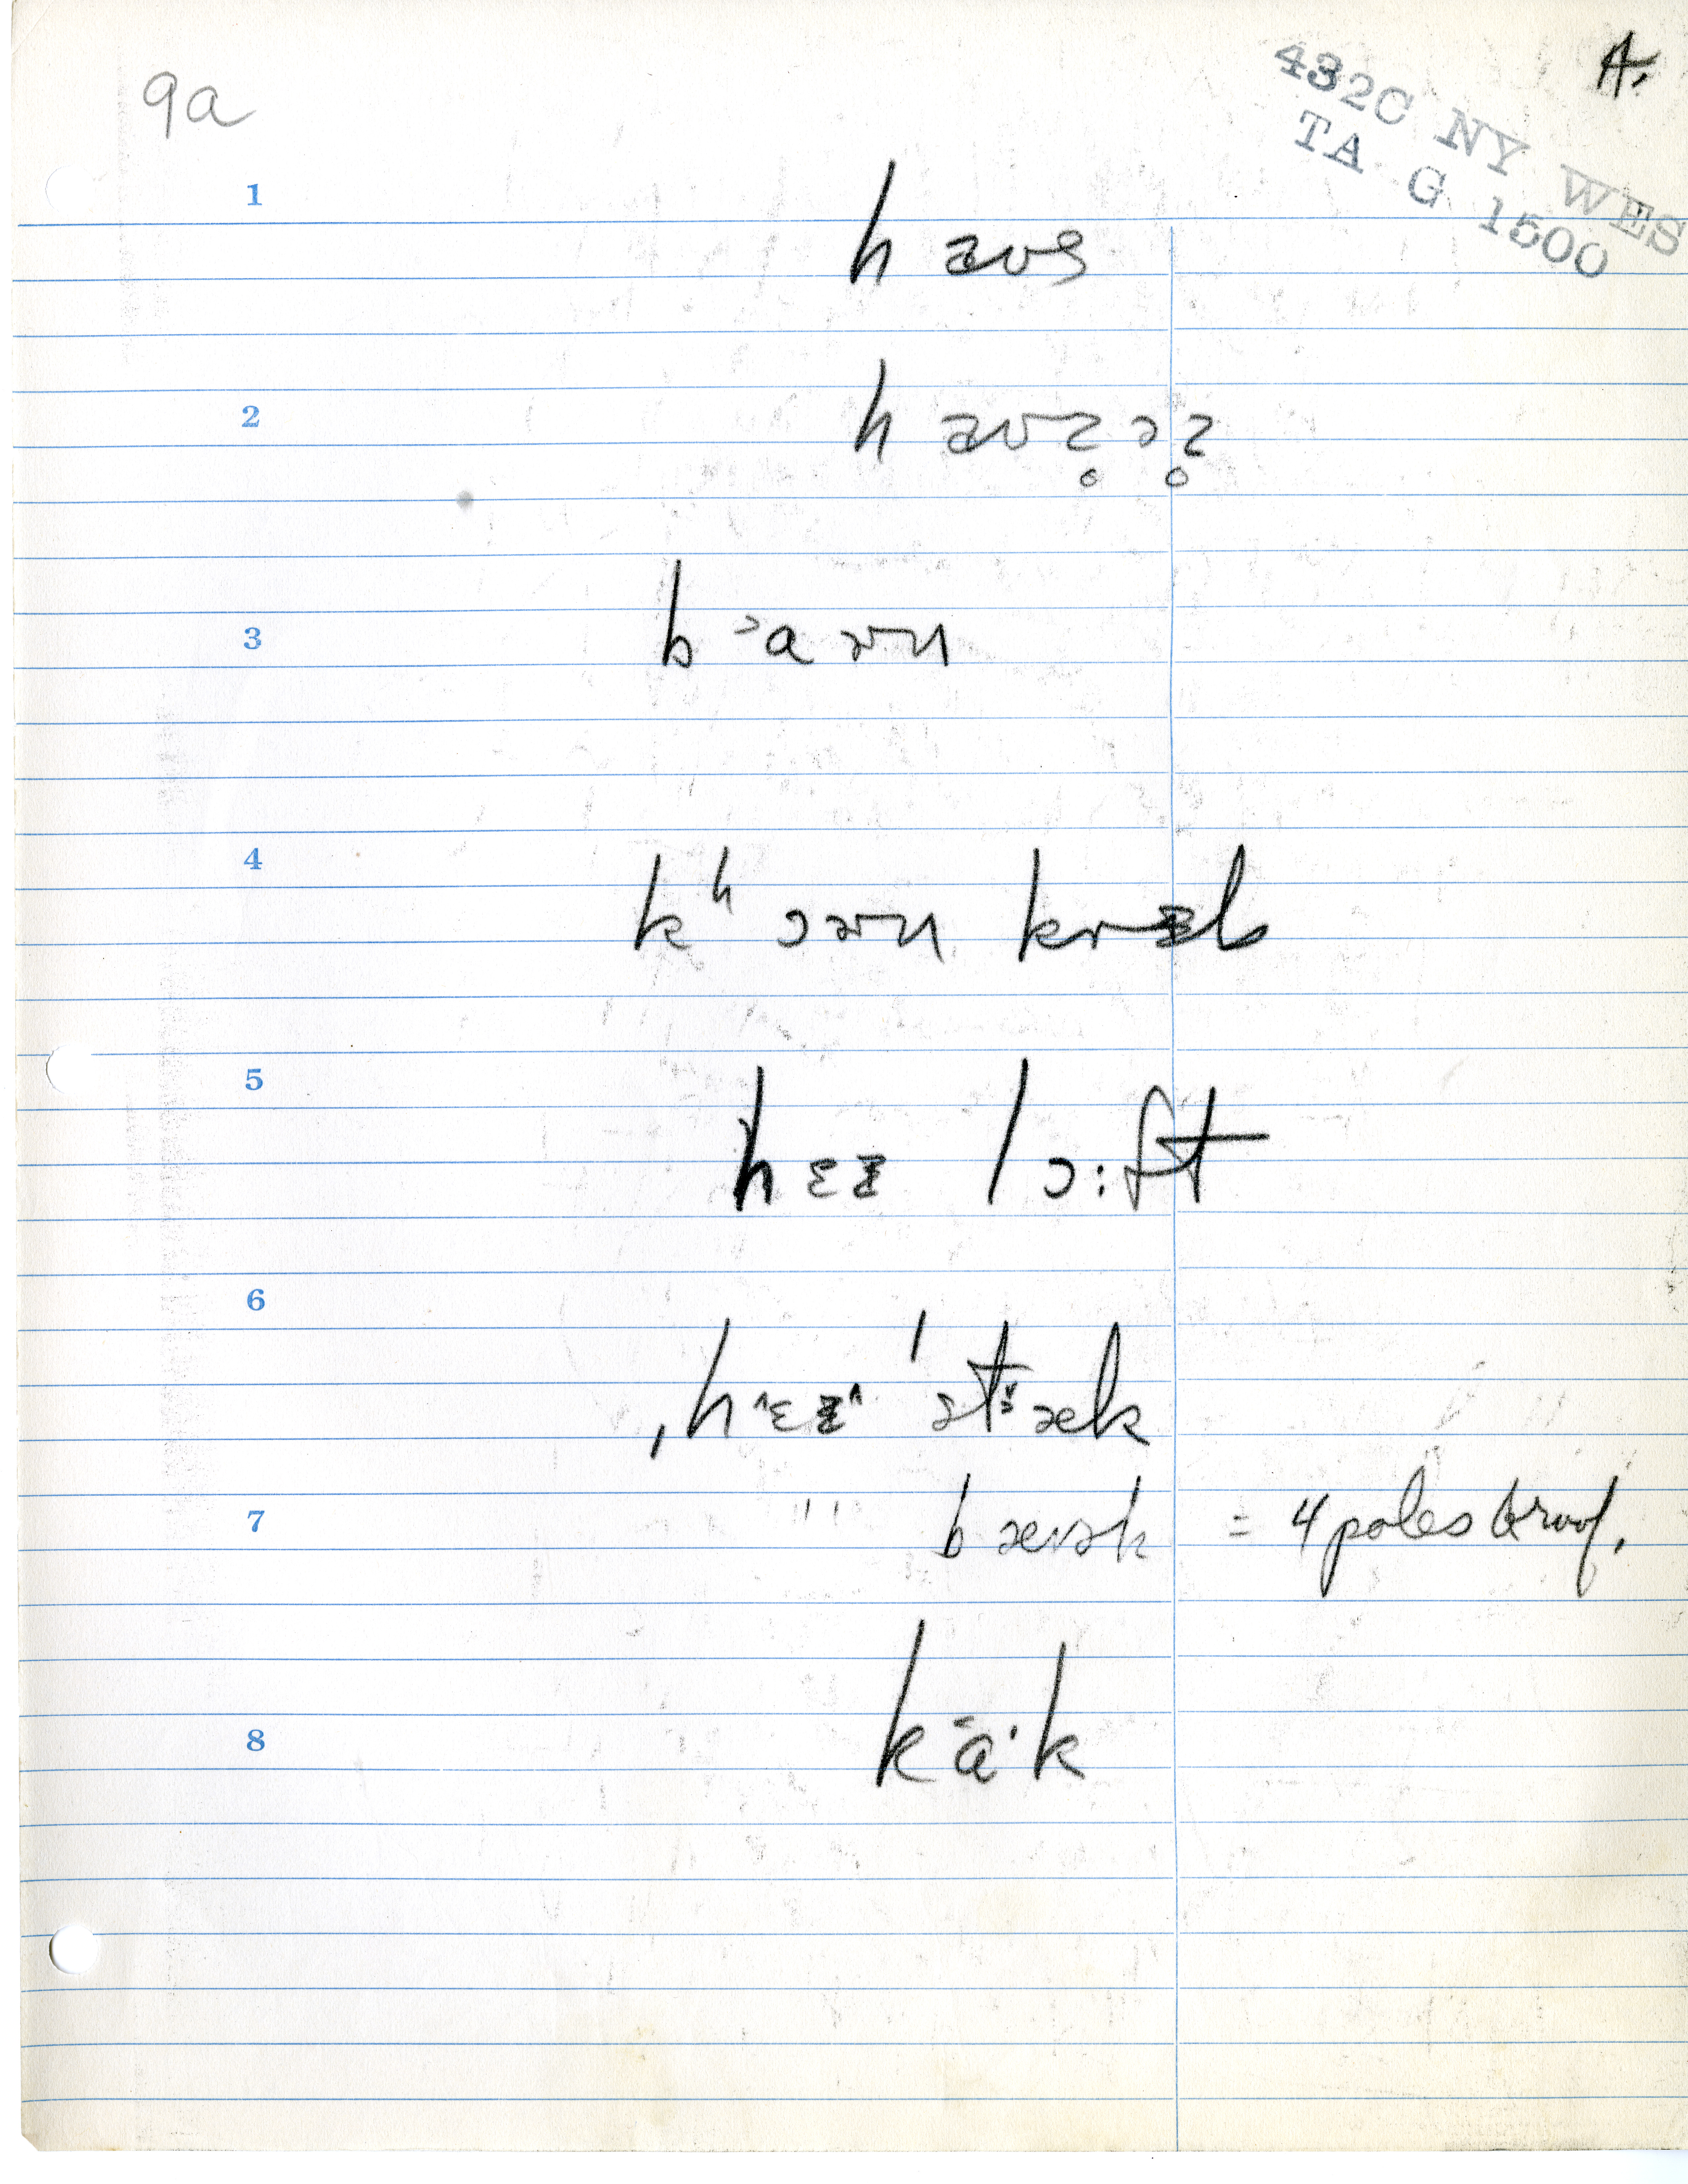 9a
A.
432C NY WES
TA G 1500
1
h aʊs
2
h aʊz̥ əz̥
3
b ˃a ən
4
kʰ ɔən krɛb
5
hɛɪ lɔːft
6
ˌh˄ɛɪ˄ ˈstæk
7
" bærək = 4 poles & roof.
8
k ā· k